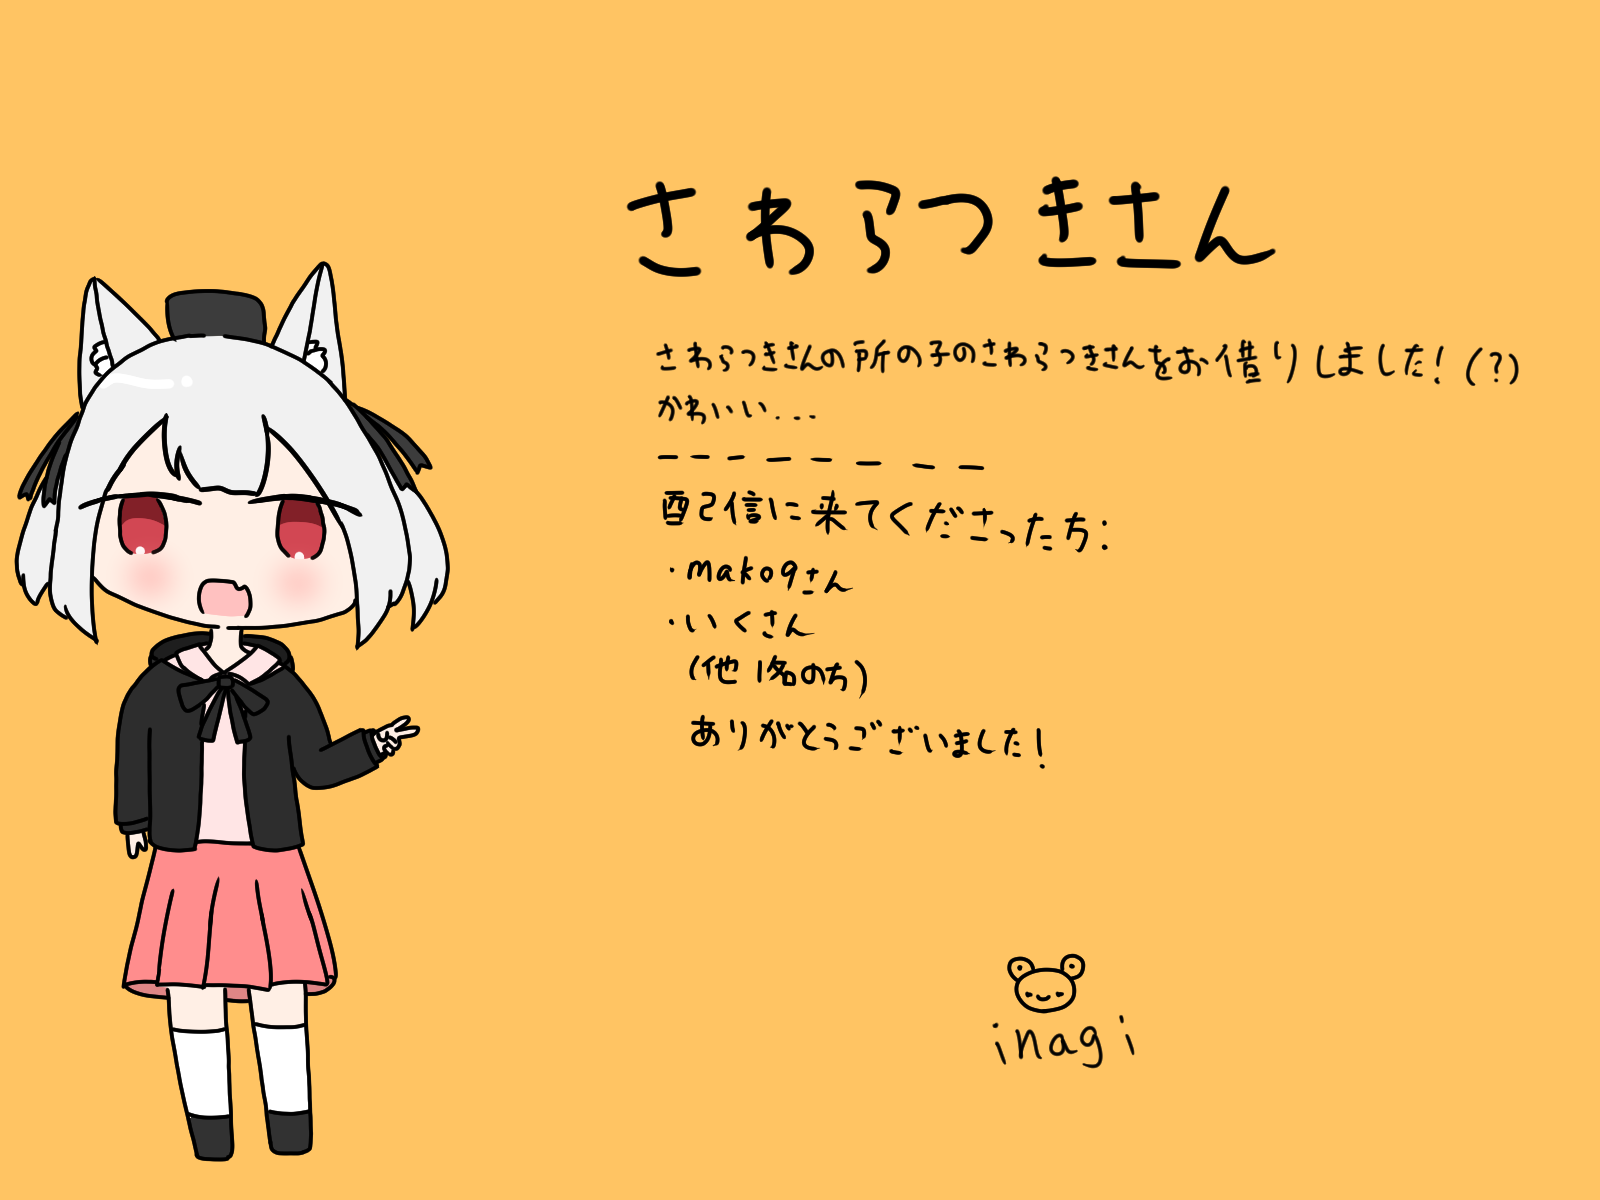 さわらつきさん
さわらつきさんの所の子のさわらつきさんをお借りしました!(?)
かわいい...
配信に来てくださった方:
・mako9さん
・いくさん
(他1名のち)
ありがとうございました!
inagi